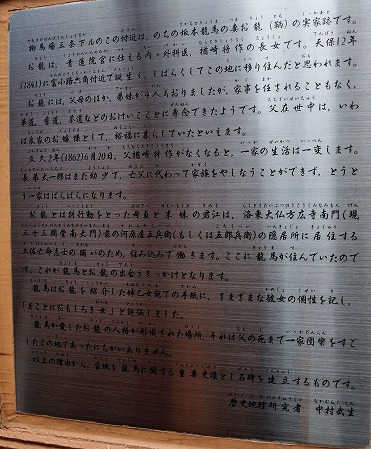 柳馬場三条下ルのこの付近は、のちの坂本龍馬の妻お龍(鞆)の実家跡です。
お龍は、青蓮院宮に仕える内・外科医、楢崎将作の長女です。天保12年
(1841)に富小路六角付近で誕生し、しばらくしてこの地に移り住んだと思われます。
お龍には、父母のほか、弟妹が4人おりましたが、家事を任されることもなく、
華道、香道、茶道などのおけいこごとに専念できたようです。父在世中は、いわ
ば良家のお嬢様として、裕福に暮らしていたといえます。
文久2年(1862)6月20日、父楢崎将作がなくなると、一家の生活は一変します。
長弟太一郎はまだ幼少で、亡父に代わって家族をやしなうことができず、とうと
う一家はばらばらになります。
お龍とは別行動をとった母貞と末妹の君江は、洛東大仏方広寺南門(現
三十三間堂南大門)前の河原屋五兵衛(もしくは五郎兵衛)の隠居所に居住する
土佐亡命志士の賄いのため、住み込みで働きます。ここに龍馬が住んでいたので
す。これが龍馬とお龍の出会うきっかけとなります。
龍馬はお龍を紹介した姉乙女宛ての手紙に、さまざまな彼女の個性を記し、
「まことにおもしろき女」と評価しました。
龍馬が愛したお龍の人格が形成された場所、それは父の死まで一家団欒をすご
したこの地であったにちがいありません。
以上の理由から、当地を龍馬に関する重要史蹟とし石碑を建立するものです。
歴史地理研究者 中村武生